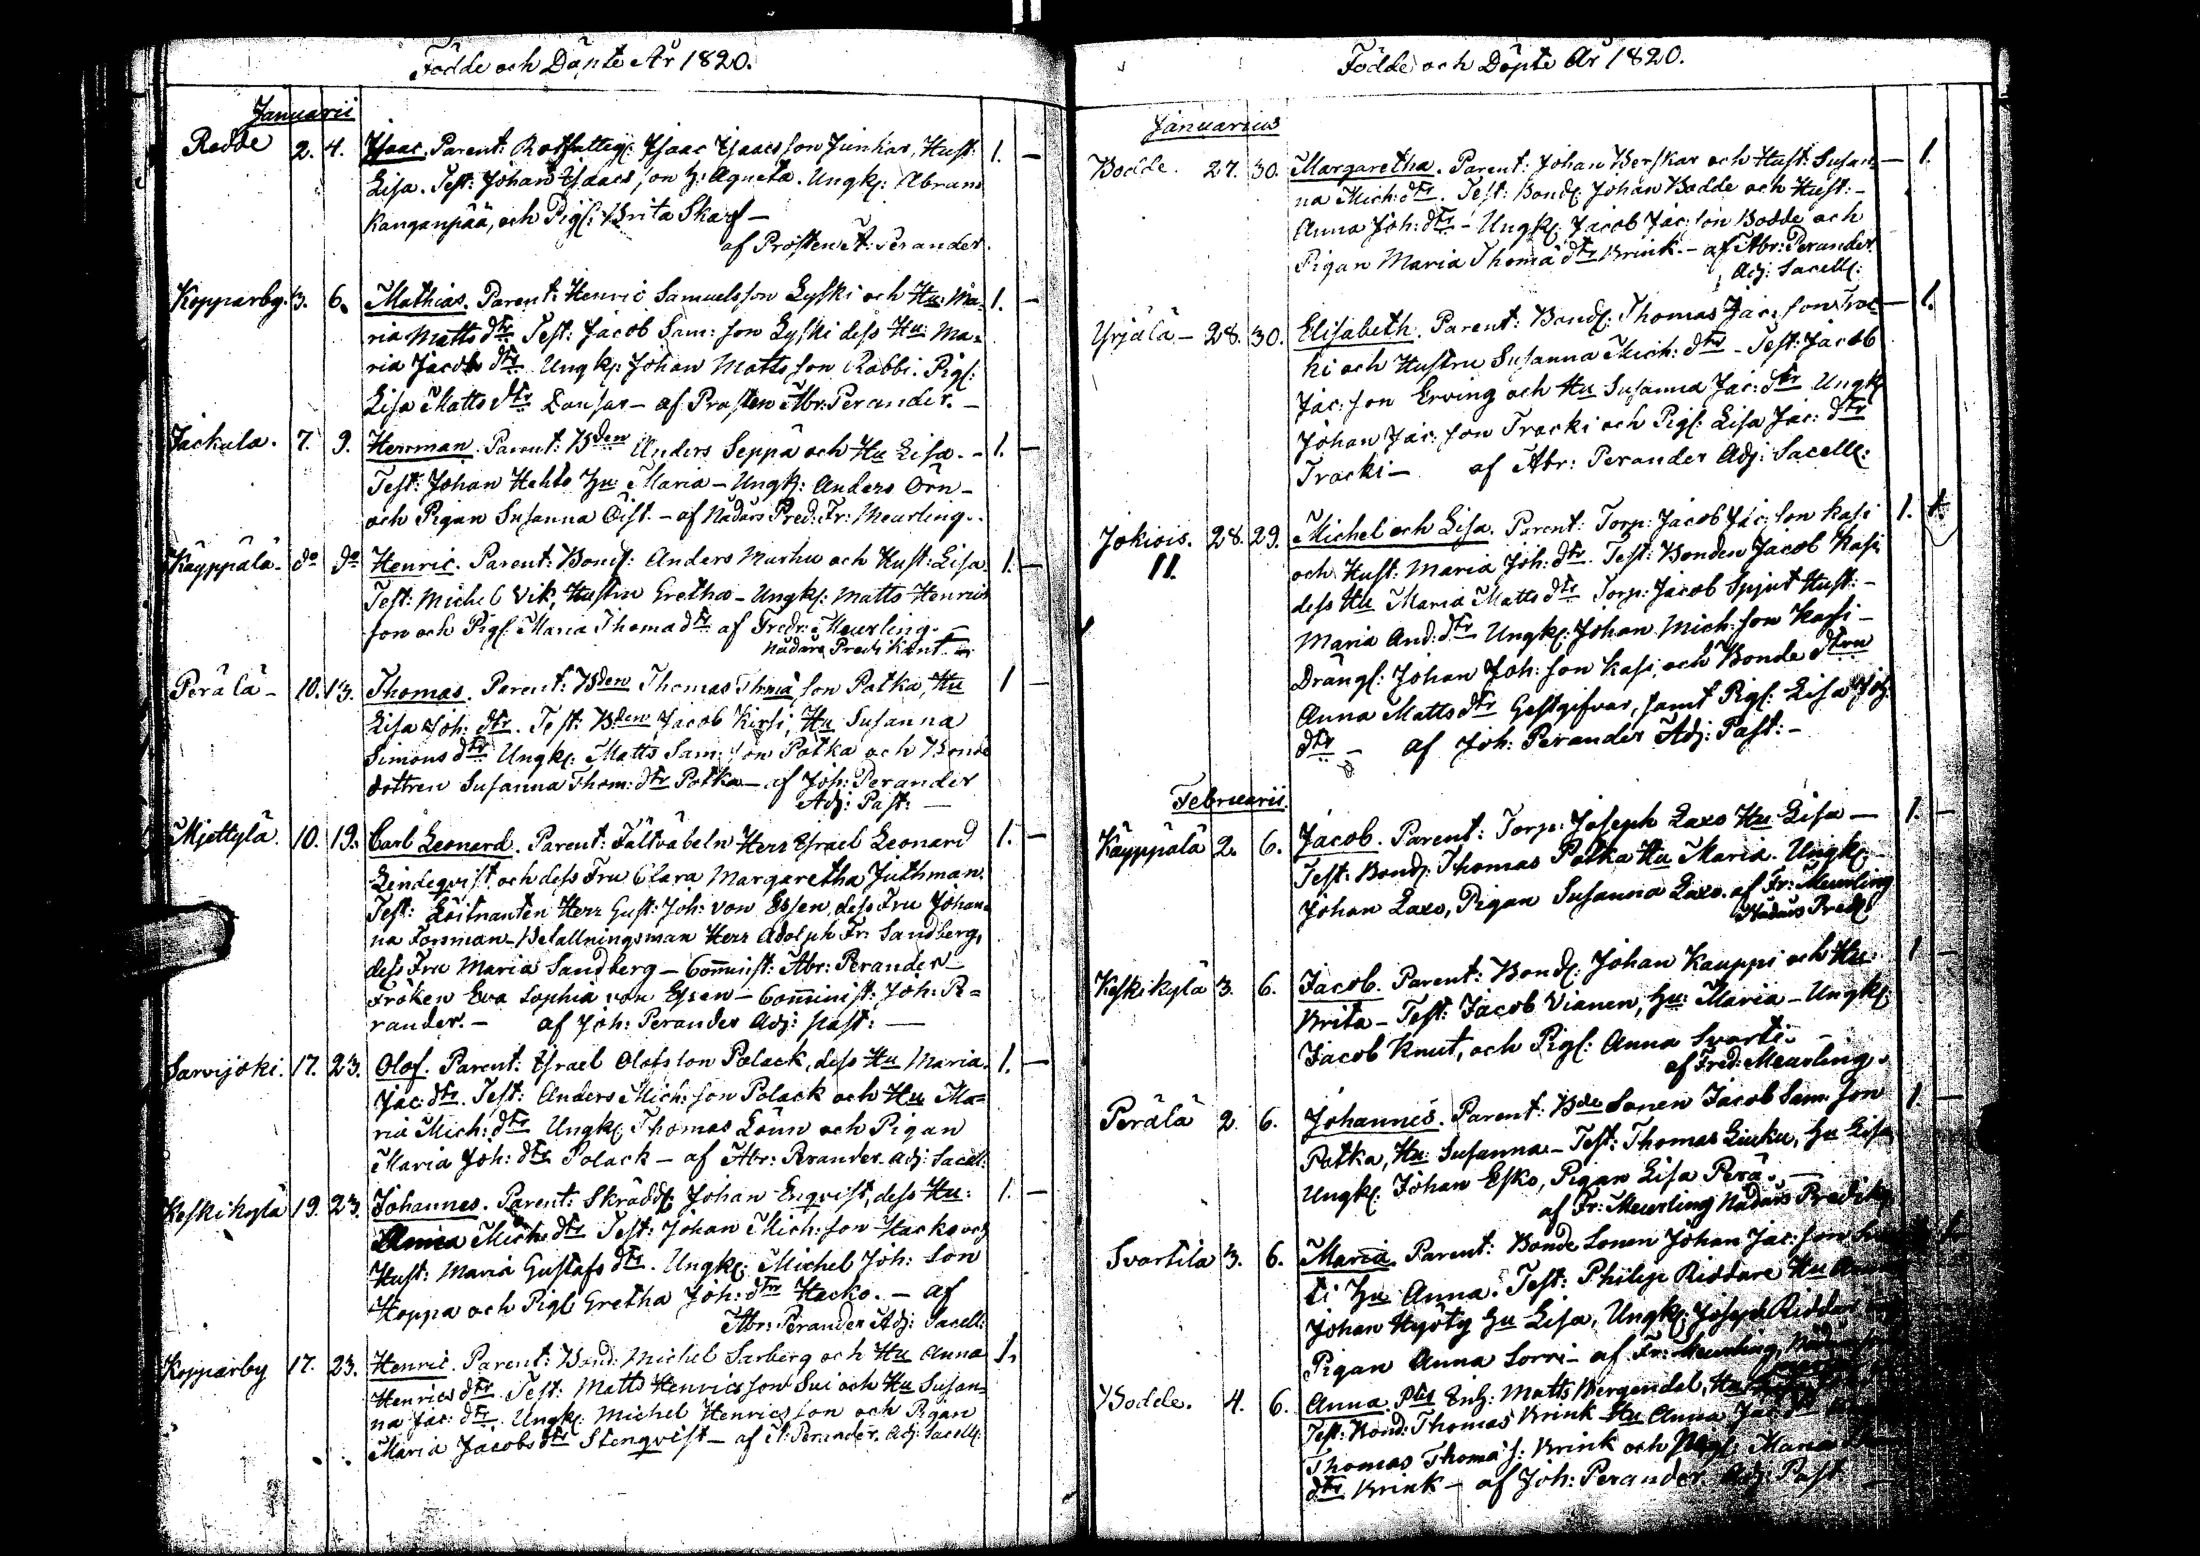 Födde och Döpte År 1820.
Januarii
Rodde 2. 4. Isaac. Parent: Rotfattig: Isaac Isaacs son Junkar, Hust: 1. —
Lisa. Test: Johan Isaacs son H: Agneta. Ungk: Abram
Kanganpää, och Pigs: Brita Skarf —
af Prosten A: Perander.
Kopparby. 3. 6. Mathias. Parent: Henric Samuelsson Lyski och Hu: Ma= 1. —
ria Matts dtr. Test: Jacob Sam: son Lyski dess Hu: Ma=
ria Jacobs dtr. Ungk: Johan Matts son Rabbi. Pigs:
Lisa Matts dtr Dansar — af Prosten Abr: Perander. —
Jackula. 7. 9. Herrman. Parent: Bden Anders Seppä och Hu Lisa. — 1. —
Test: Johan Hehto Hu Maria — Ungk: Anders Örn —
och Pigan Susanna Öist. — af Nådårs Pred: Fr: Meurling.
Käyppälä — do do Henric. Parent: Bond: Anders Murhu och Hust: Lisa. 1. —
Test: Michel Vik, Hustru Gretha — Ungk: Matts Henrics
son och Pigs: Maria Thoma dtr af Fredr: Meurling. —
Nådårs Predikant.
Perälä — 10. 13. Thomas. Parent: Bden Thomas Thomä son Patka, Hu 1 —
Lisa Joh: dtr. Test: Bden Jacob Kirsi, Hu Susanna
Simons dtr Ungk: Matts Sam: son Potka och Bonde
dottren Susanna Thom: dtr Potka — af Joh: Perander
Adj: Past: —
Mjettylä. 10. 19. Carl Leonard. Parent: Fältväbeln Herr Israel Leonard 1. —
Lindeqvist och dess Fru Clara Margaretha Juthman.
Test: Löitnanten Herr Gust: Joh: von Essen, dess Fru Johan=
na Forsman — Befallningsman Herr Adolph Fr: Sandberg,
dess Fru Maria Sandberg — Comminist: Abr: Perander —
Fröken Eva Sophia von Essen — Comminist: Joh: Pe=
rander. — af Joh: Perander Adj: past: —
Sarvijoki. 17. 23. Olof. Parent: Israel Olofs son Polack, dess Hu Maria 1. —
Jac: dtr. Test: Anders Mich: son Polack och Hu Ma=
ria Mich: dtr Ungk: Thomas Löun och Pigan
Maria Joh: dtr Polack — af Abr: Perander. Adj: Sacell:
Keskikylä 19. 23. Johannes. Parent: Skrädd: Johan Enqvist, dess Hu: 1. —
Anna Mich: dtr Test: Johan Mich: son Hacko och
Hust: Maria Gustafs dtr. Ungk: Michel Joh: Son
Hoppa och Pigs Gretha Joh: dtr Hacko. — af
Abr: Perander Adj: Sacell:
Kopparby 17. 23. Henric. Parent: Bond: Michel Sarberg och Hu Anna 1.
Henrics dtr. Test: Matts Henrics son Sui och Hu Susan=
na Jac: dtr. Ungk: Michel Henrics son och Pigan
Maria Jacobs dtr Stenqvist — af A: Perander. Adj: Sacell:
Födde och Döpte År 1820.
Januarius
Bodde. 27. 30. Margaretha. Parent: Johan Berskar och Hust: Susan — 1.
na Mich: dtr. Test: Bond: Johan Bodde och Hust: —
Anna Joh: dtr — Ungk: Jacob Jac: son Bodde och
Pigan Maria Thomä dtr Brink. — af Abr: Perander.
Adj: Sacell:
Yrjälä — 28. 30. Elisabeth. Parent: Bond: Thomas Jac: son Trac — 1.
ki och Hustru Susanna Mich: dtr — Test: Jacob
Jac: son Erving och Hu Susanna Jac: dtr Ungk
Johan Jac: son Tracki och Pigs: Lisa Jac: dtr
Tracki — af Abr: Perander Adj: Sacell:
Jokiois. 28. 29. Michel och Lisa. Parent: Torp: Jacob Jac: son Kasi 1. 1.
11. och Hust: Maria Joh: dtr. Test: Bonden Jacob Kasi
dess Hu Maria Matts dtr Torp: Jacob Spjut Hust: —
Maria And: dtr Ungk: Johan Mich: son Kasi —
Drängs: Johan Joh: son Kasi, och Bonde dtren
Anna Matts dtr Gästgifvar, samt Pigs: Lisa Joh:
dtr — af Joh: Perander Adj: Past: —
Februarii.
Käyppälä 2. 6. Jacob. Parent: Torp: Joseph Laxo Hu Lisa — 1. —
Test: Bond: Thomas Potka Hu Maria. Ungk: —
Johan Laxo, Pigan Susanna Laxo. af Fr: Meurling
Nådårs Pred:
Keskikylä 3. 6. Jacob. Parent: Bond: Johan Kauppi och Hu: 1 —
Brita — Test: Jacob Vianen, Hu: Maria — Ungk:
Jacob Knut, och Pigs: Anna Svarti. —
af Fred: Meurling.
Perälä 2. 6. Johannes. Parent: Bde Sonen Jacob Sam: son 1. —
Potka, Hu: Susanna. — Test: Thomas Liuku, Hu Lisa
Ungk: Johan Esko, Pigan Lisa Perä. —
af Fr: Meurling Nådårs Predik:
Svartila 3. 6. Maria. Parent: Bonde Sonen Johan Jac: son
ti Hu Anna. Test: Philip Riddare Hu
Johan Hyöty Hu Lisa, Ungk: Joseph Riddar
Pigan Anna Sorri — af Fr: Meurling,
Bodde. 4. 6. Anna. Ptes Enh: Matts Bergendal, Hu
Test: Bond: Thomas Brink Hu Anna Jac
Thomas Thomä s: Brink och Pigs: Maria
dtr Brink — af Joh: Perander. Adj: Past